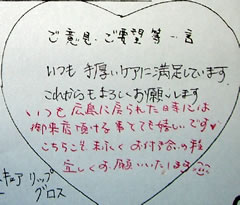 ご意見・ご要望等一言
いつも手厚いケアに満足しています
これからもよろしくお願いします
いつも広島に戻られた日時には
御来店頂けるまでも嬉しいです♥
こちらこそ末永くお付き合いの程
宜しくお願いいたします
キュア リップ
グロス